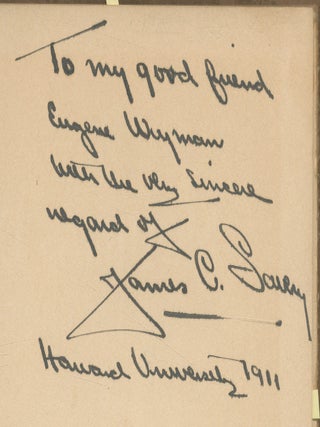 To my good friend
Eugene Wyman
with the very sincere
regard of
James C.
Howard University 1911